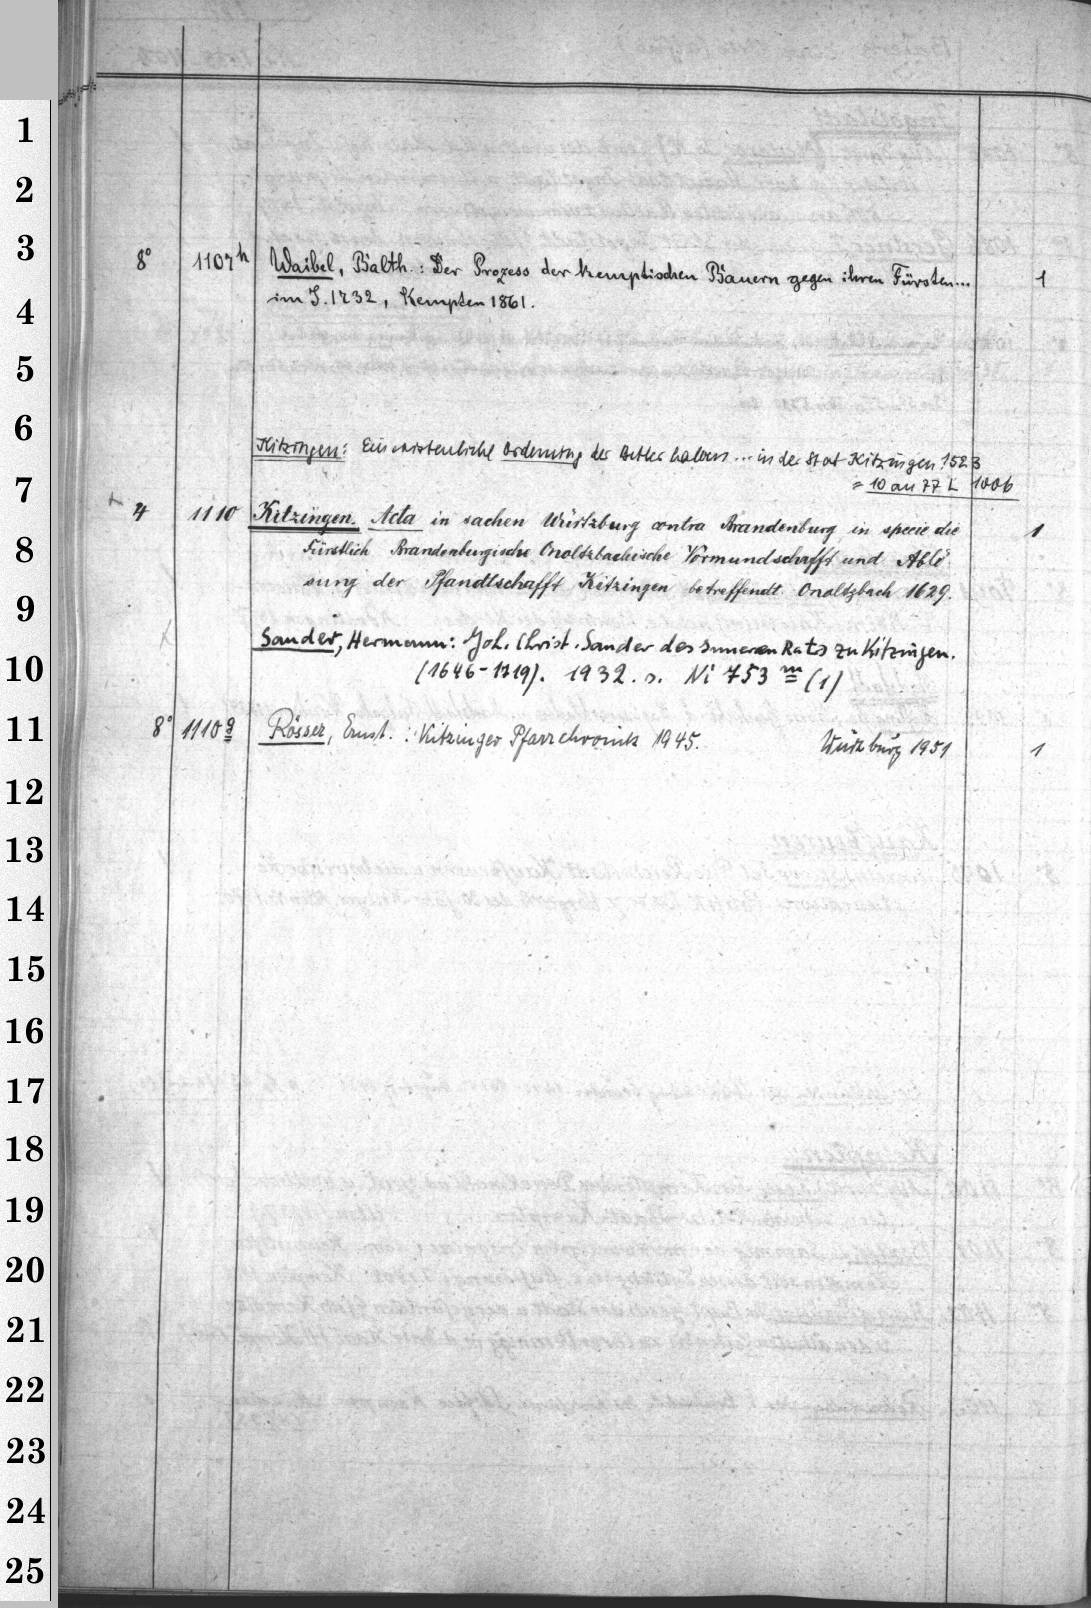 1
2
3
4
5
6
7
8
9
10
11
12
13
14
15
16
17
18
19
20
21
22
23
24
25
8° 1107h Waibel, Balth.: Der Prozess der kemptischen Bauern gegen ihren Fürsten... 1
im J. 1732, Kempten 1861.
Kitzingen: Ein cristenliche Ordenung der Bettler halben ... in der Stat Kitzingen 1523
= 10 an 77 L 1006
4 1110 Kitzingen. Acta in sachen Würtzburg contra Brandenburg in specie die 1
Fürstlich Brandenburgische Onoltzbachische Vormundschafft und Ablö
sung der Pfandtschafft Kitzingen betreffendt. Onoltzbach 1629.
Sander, Hermann: Joh. Christ. Sander des Inneren Rats zu Kitzingen.
(1646-1719). 1932. s. Ni 753 m (1)
8° 1110 g Rösser, Ernst.: Kitzinger Pfarrchronik 1945. Würzburg 1951 1